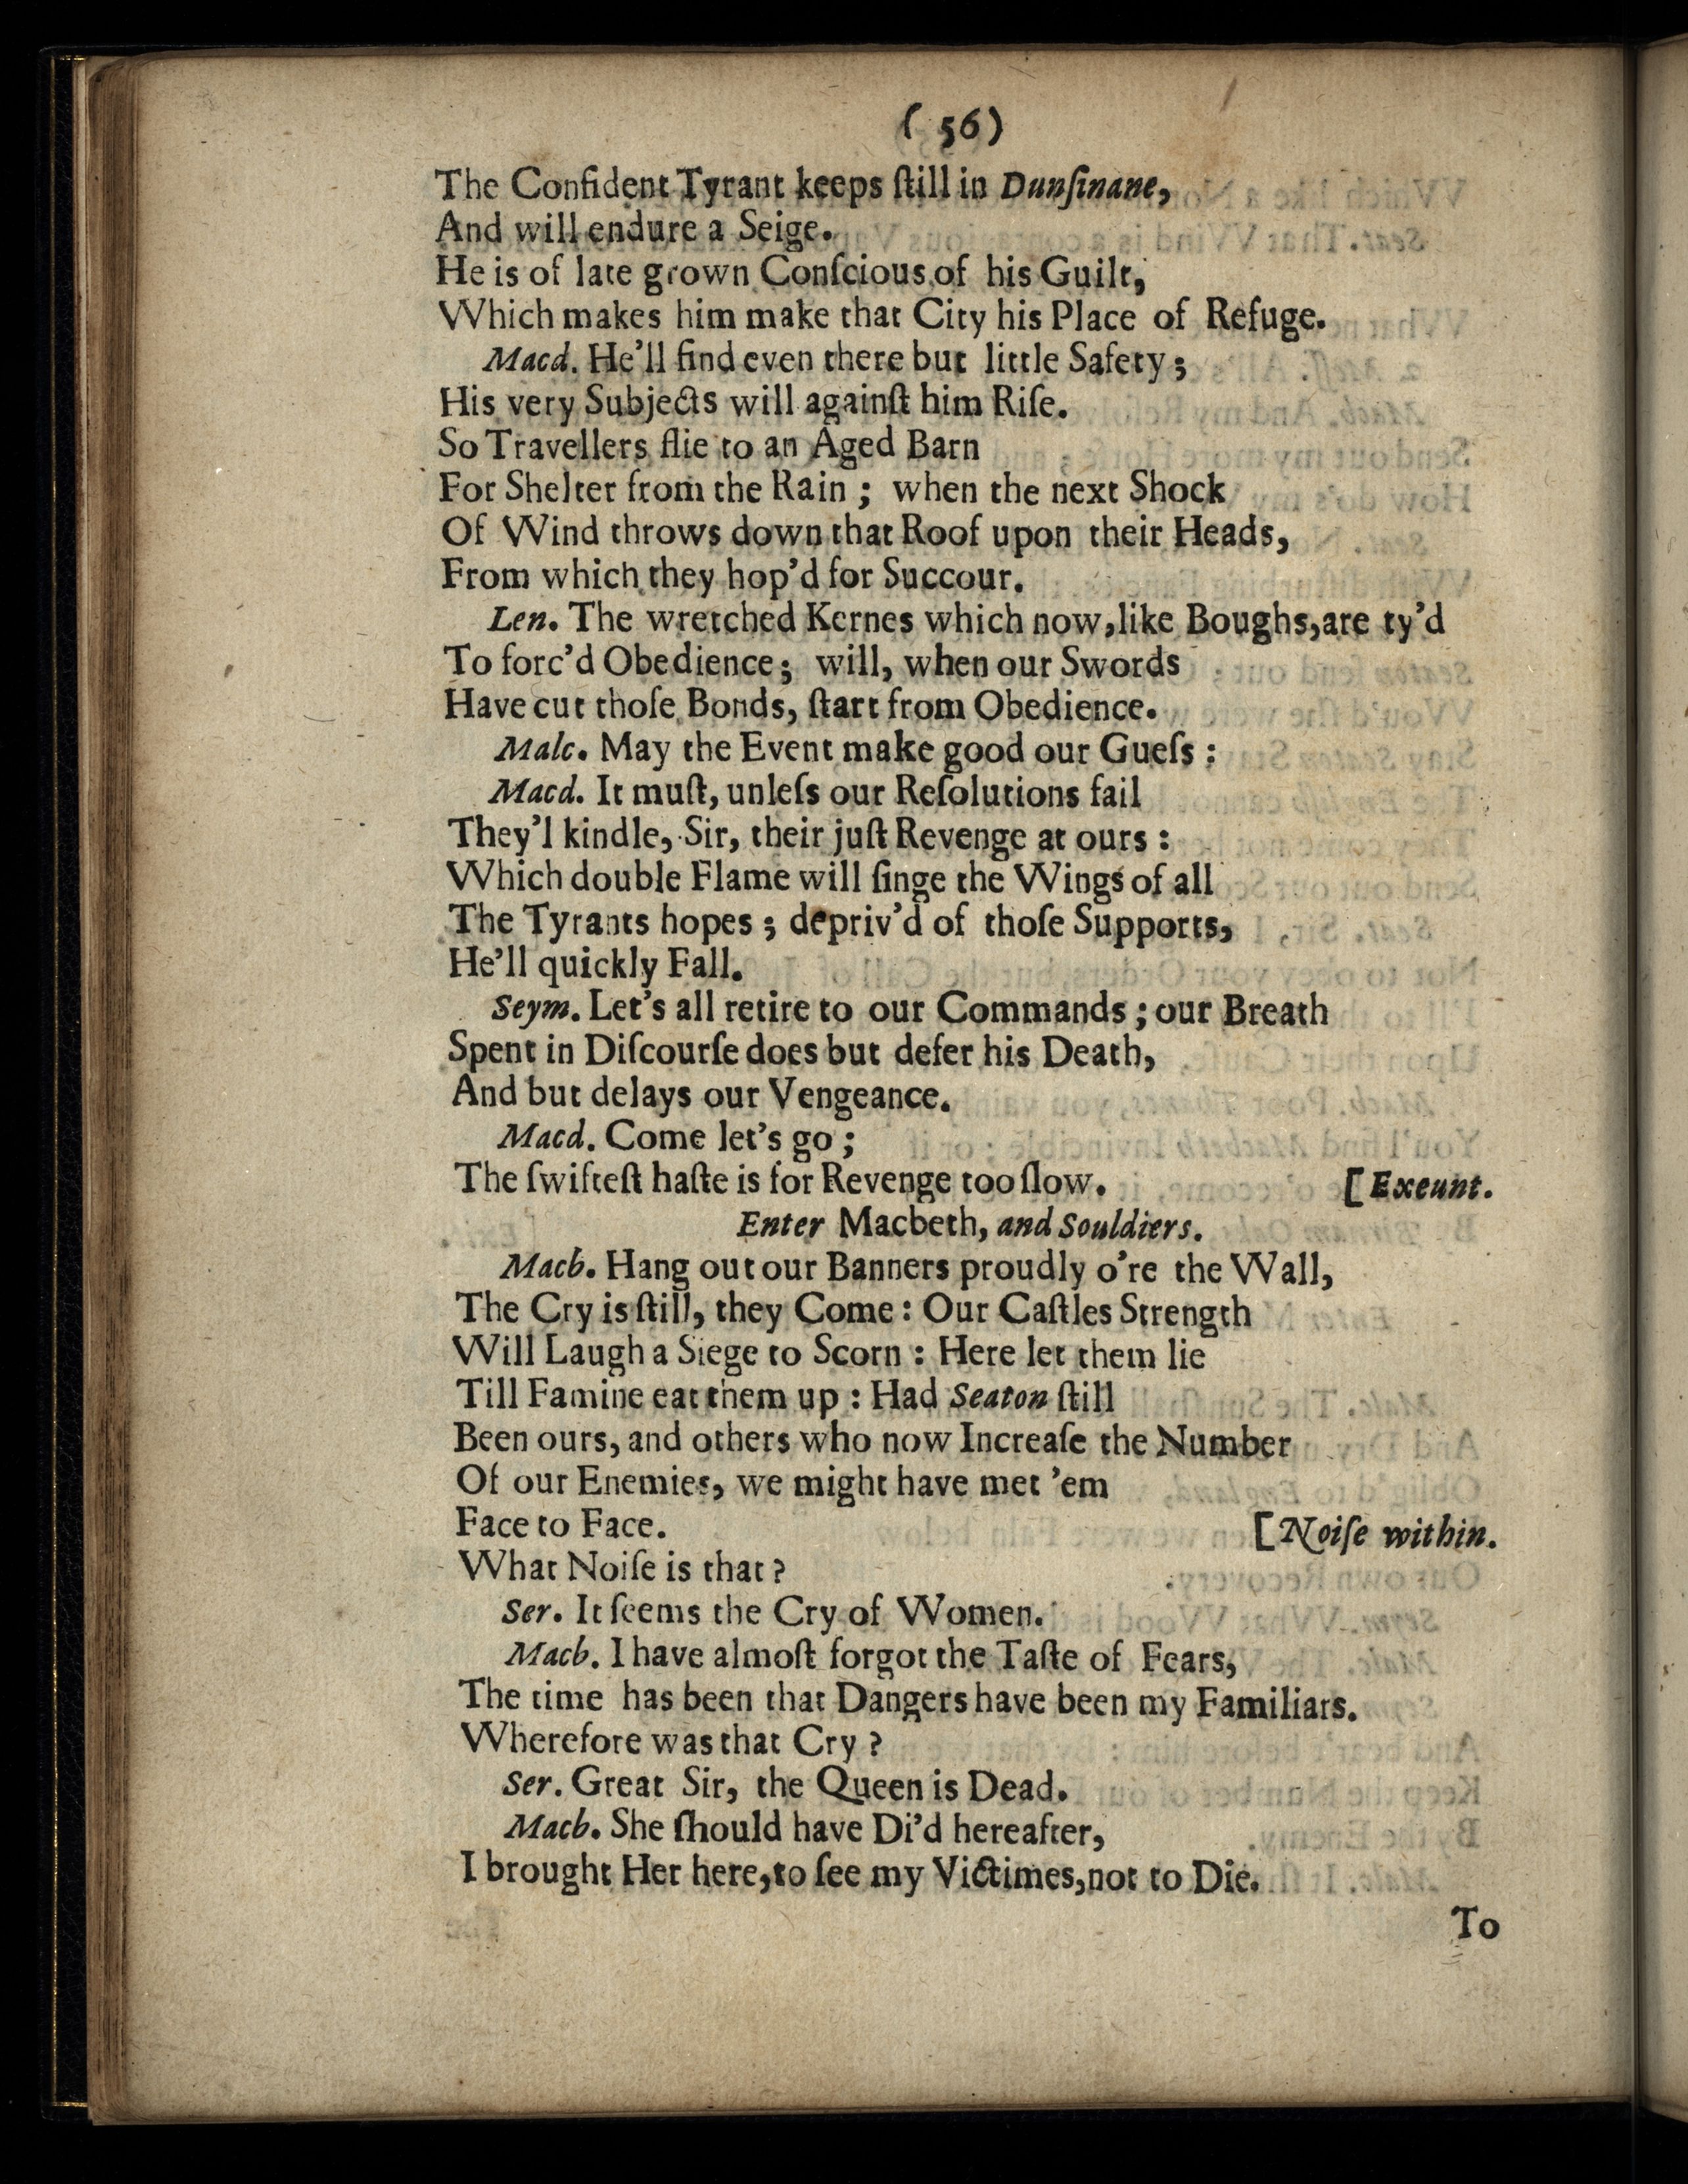 ( 56 )
The Confident Tyrant keeps ſtill in Dunſinane,
And will endure a Seige.
He is of late grown Conſcious of his Guilt,
Which makes him make that City his Place of Refuge.
Macd. He'll find even there but little Safety;
His very Subjects will againſt him Riſe.
So Travellers flie to an Aged Barn
For Shelter from the Rain; when the next Shock
Of Wind throws down that Roof upon their Heads,
From which they hop'd for Succour.
Len. The wretched Kernes which now, like Boughs, are ty'd
To forc'd Obedience; will, when our Swords
Have cut thoſe Bonds, ſtart from Obedience.
Malc. May the Event make good our Gueſs:
Macd. It muſt, unleſs our Reſolutions fail
They'l kindle, Sir, their juſt Revenge at ours:
Which double Flame will ſinge the Wings of all
The Tyrants hopes; depriv'd of thoſe Supports,
He'll quickly Fall.
Seym. Let's all retire to our Commands; our Breath
Spent in Diſcourſe does but defer his Death,
And but delays our Vengeance.
Macd. Come let's go;
The ſwifteſt haſte is for Revenge too ſlow. [Exeunt.
Enter Macbeth, and Souldiers.
Macb. Hang out our Banners proudly o're the Wall,
The Cry is ſtill, they Come: Our Caſtles Strength
Will Laugh a Siege to Scorn: Here let them lie
Till Famine eat them up: Had Seaton ſtill
Been ours, and others who now Increaſe the Number
Of our Enemies, we might have met 'em
Face to Face. [Noiſe within.
What Noiſe is that?
Ser. It ſeems the Cry of Women.
Macb. I have almoſt forgot the Taſte of Fears,
The time has been that Dangers have been my Familiars.
Wherefore was that Cry?
Ser. Great Sir, the Queen is Dead.
Macb. She ſhould have Di'd hereafter,
I brought Her here, to ſee my Victimes, not to Die.
To